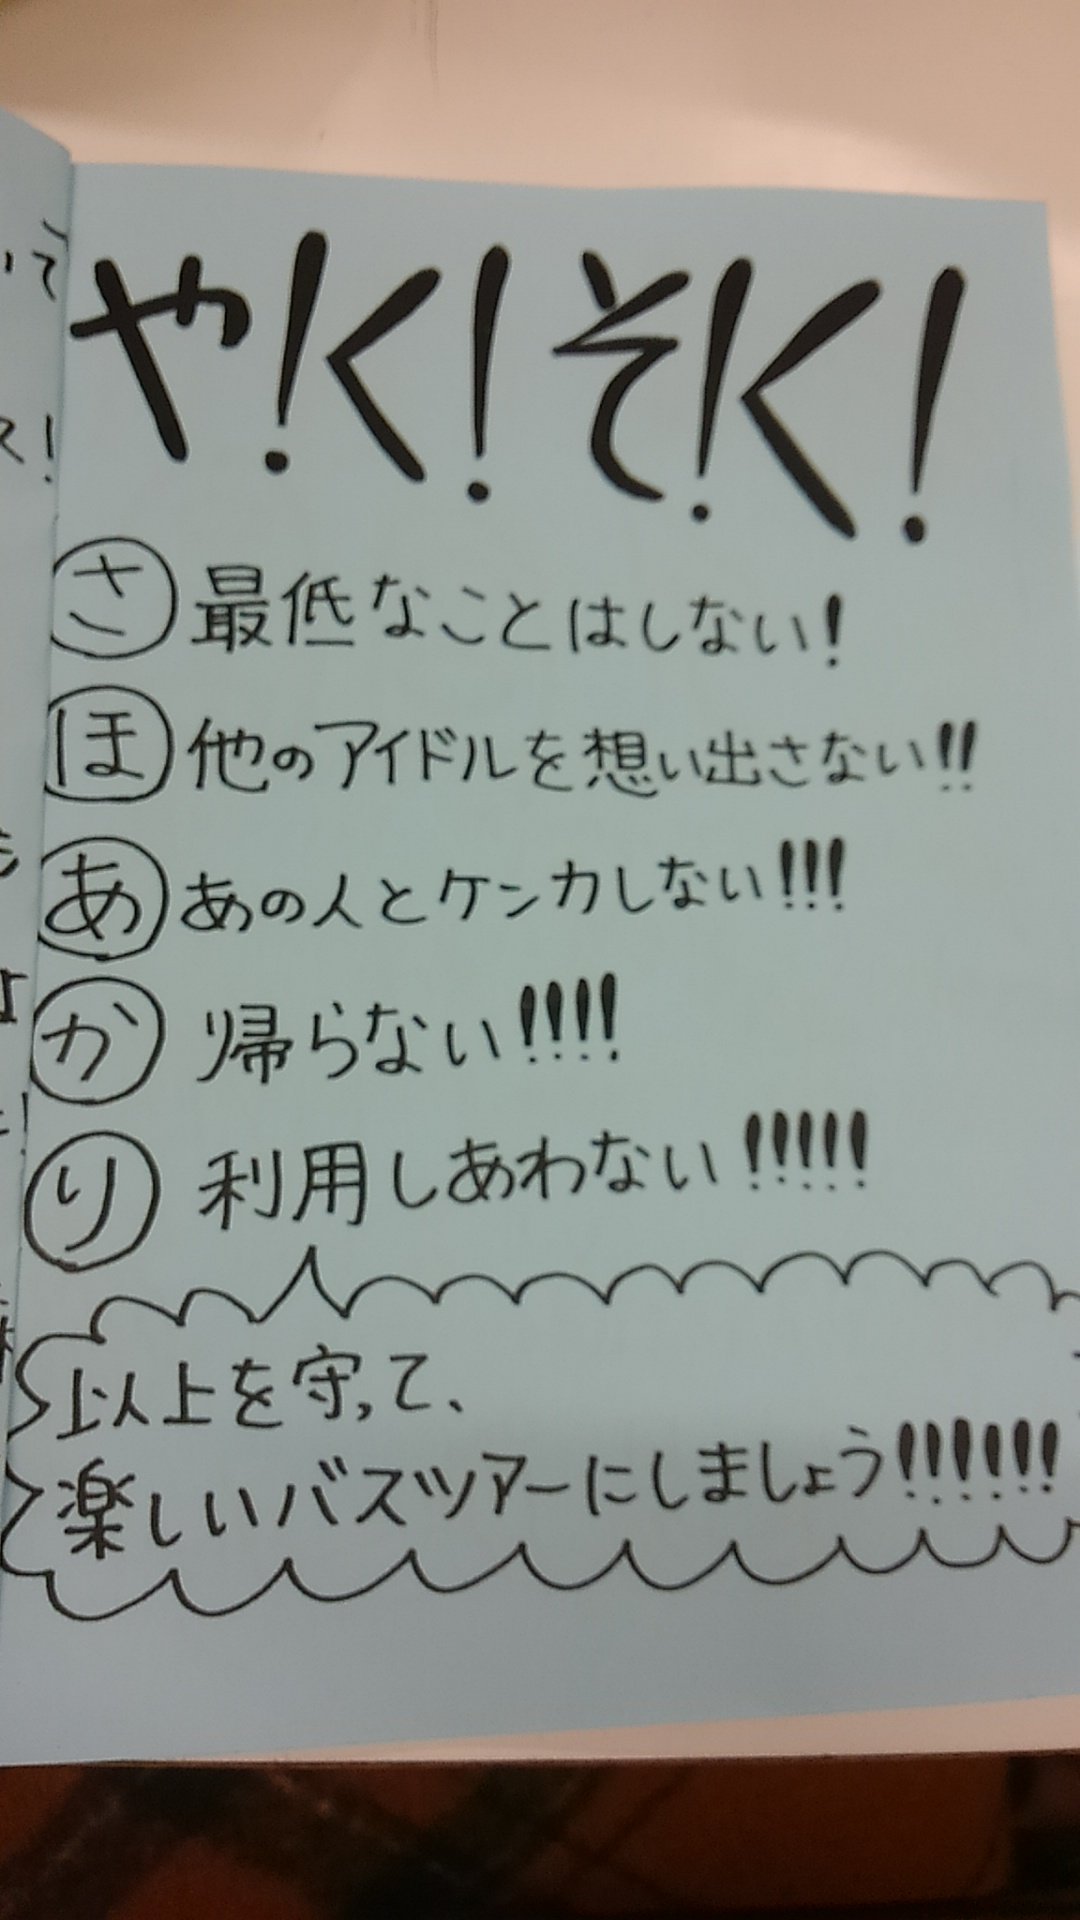 や!く!そ!く!
さ 最低なことはしない!
ほ 他のアイドルを想い出さない!!
あ あの人とケンカしない!!!
か 帰らない!!!!
り 利用しあわない!!!!!
以上を守って、
楽しいバスツアーにしましょう!!!!!!